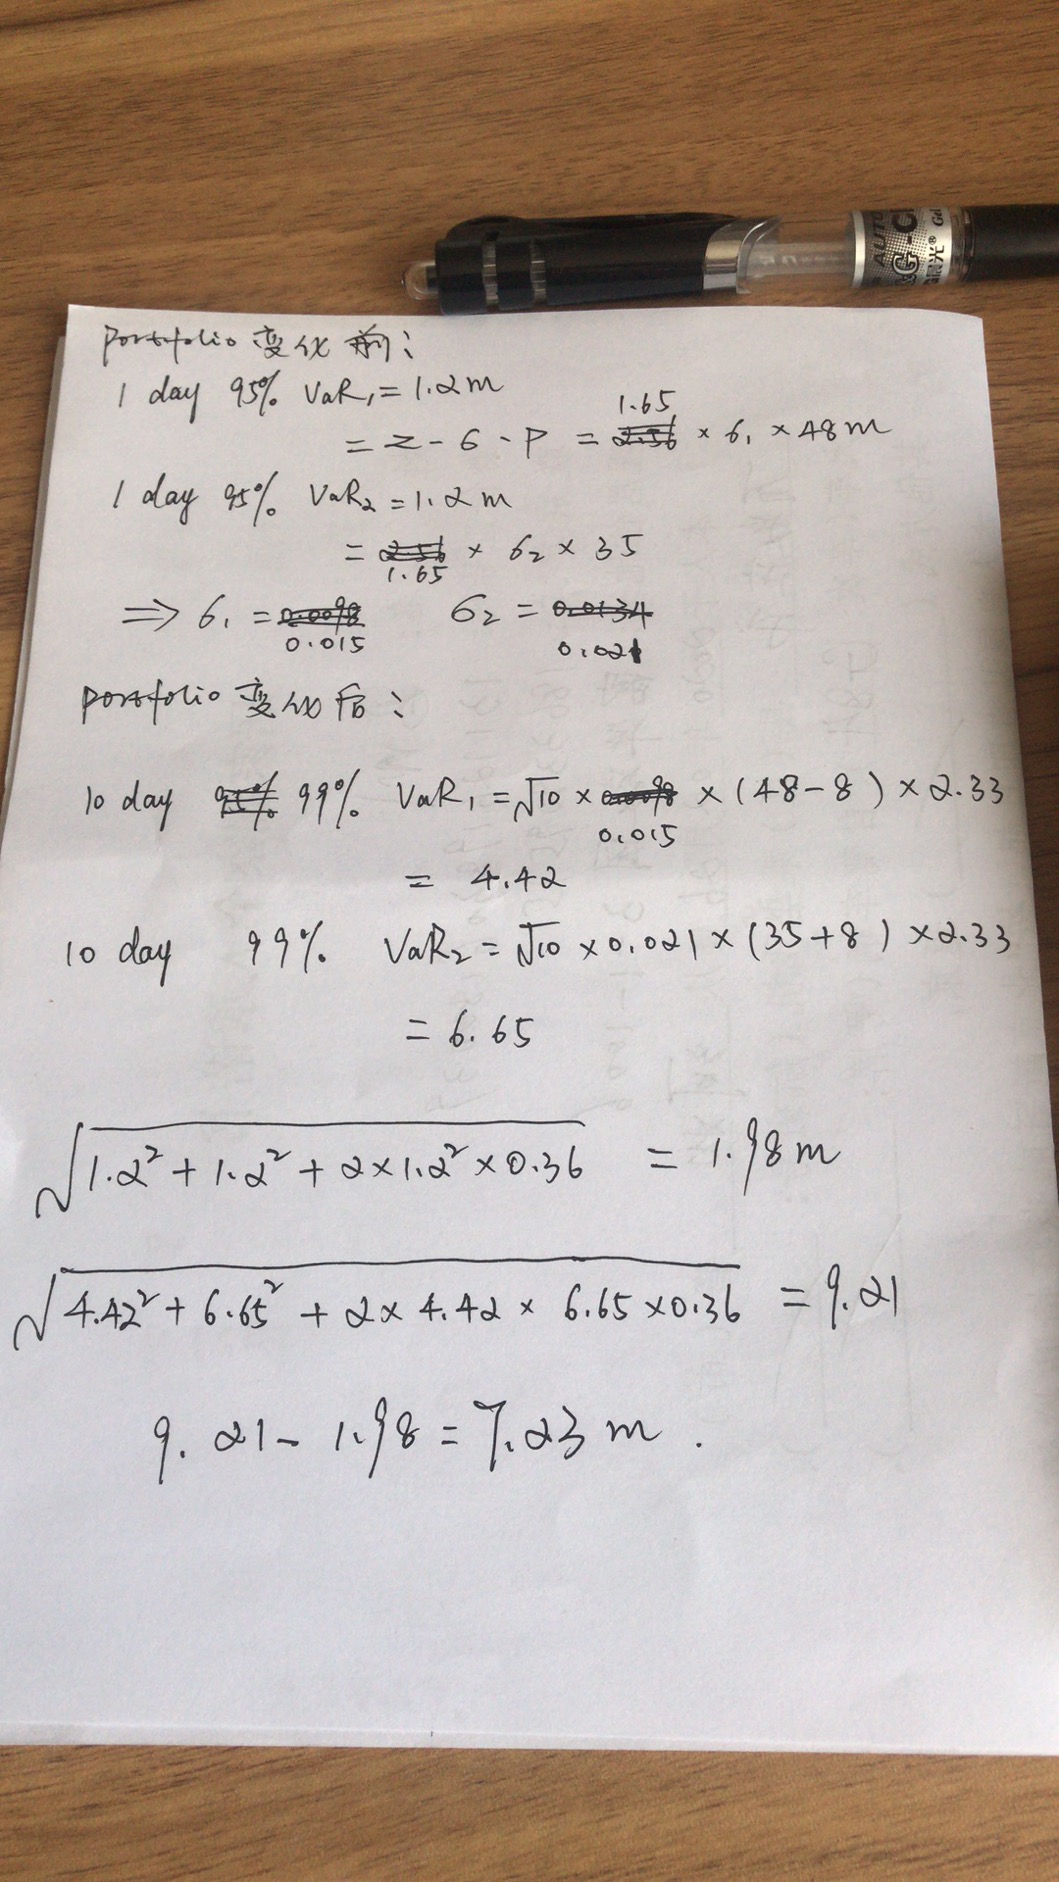 AUTO
G-C
Gel
晨光®
Portfolio 变化前:
1 day 95% VaR₁ = 1.2m
= z - σ - P = 1.65 × σ₁ × 48m
1 day 95% VaR₂ = 1.2m
= 1.65 × σ₂ × 35
⇒ σ₁ = 0.015 σ₂ = 0.021
portfolio 变化后:
10 day 99% VaR₁ = √10 × 0.015 × (48-8) × 2.33
= 4.42
10 day 99% VaR₂ = √10 × 0.021 × (35+8) × 2.33
= 6.65
√(1.2² + 1.2² + 2×1.2²×0.36) = 1.98m
√(4.42² + 6.65² + 2× 4.42 × 6.65 ×0.36) = 9.21
9.21 - 1.98 = 7.23 m.